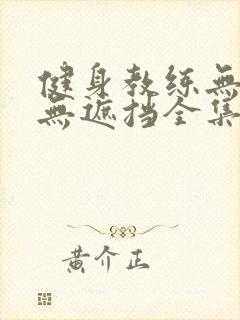 健身教练無
無遮挡全集
黄介正